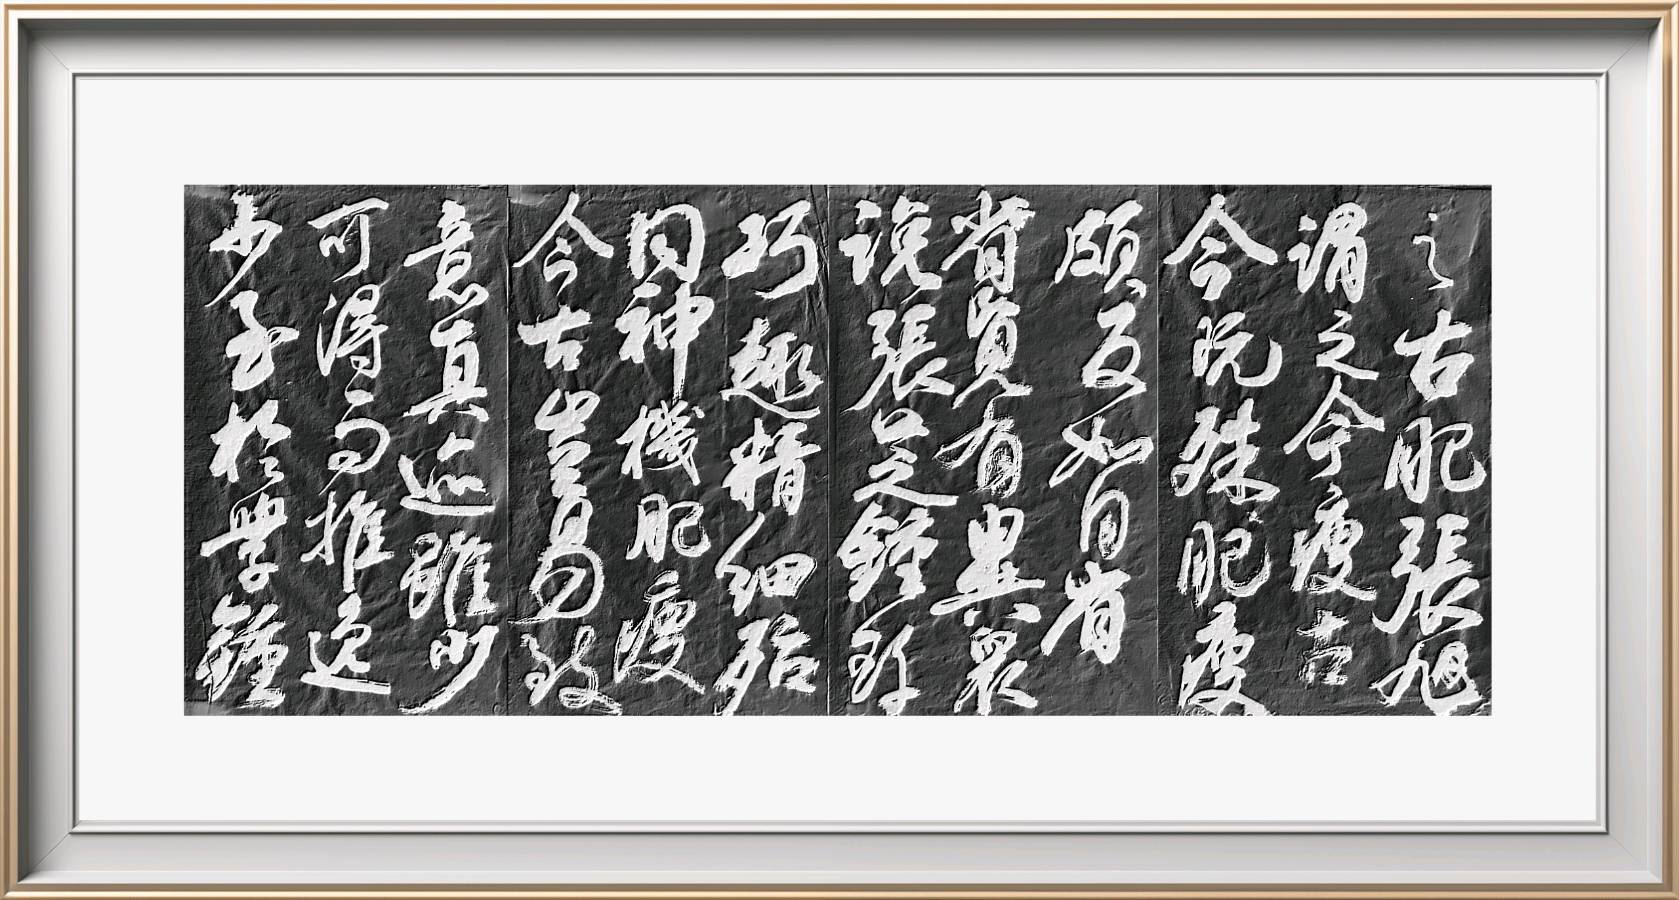 之古肥張旭
謂之今瘦古
今既殊肥瘦
頗反如自省
省覽有異衆
說張芝鍾繇
巧趣精細殆
同神機肥瘦
今古豈易致
意真迹雖少
可得而推逸
少至於學鍾